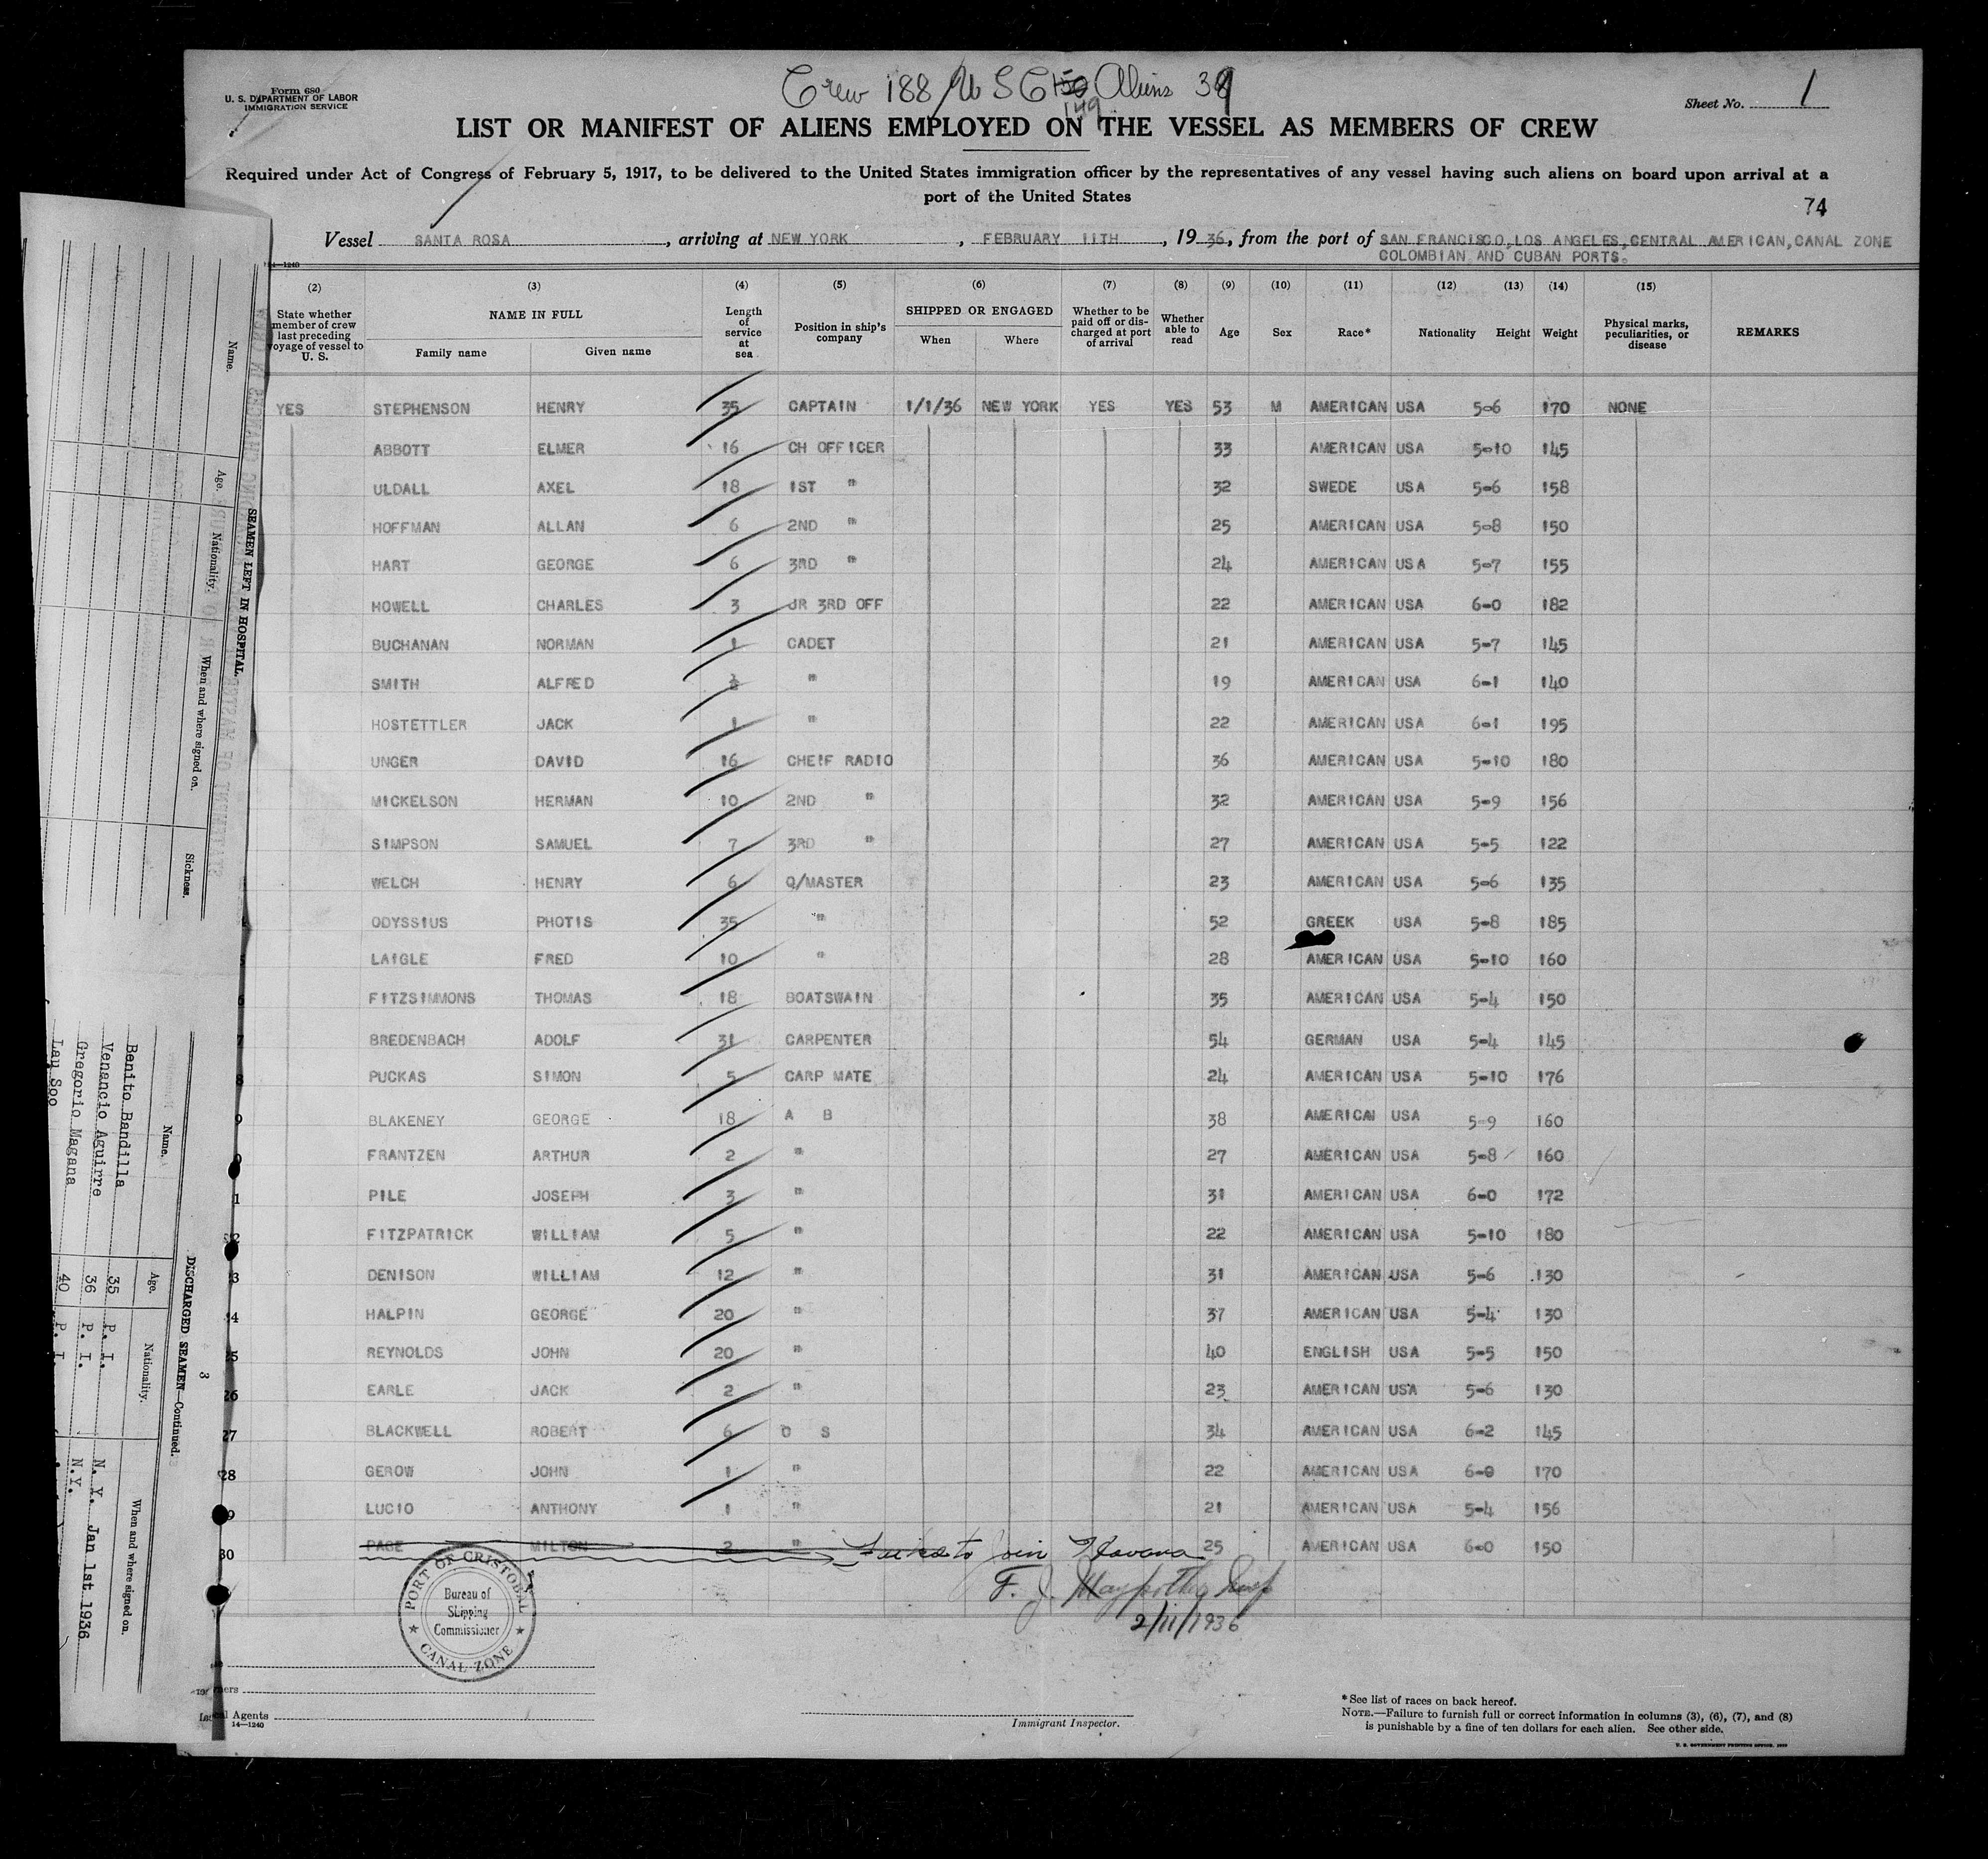 Form 680
U. S. DEPARTMENT OF LABOR
IMMIGRATION SERVICE
Crew 188 / U S C 150 149 Aliens 39
Sheet No. 1
LIST OR MANIFEST OF ALIENS EMPLOYED ON THE VESSEL AS MEMBERS OF CREW
Required under Act of Congress of February 5, 1917, to be delivered to the United States immigration officer by the representatives of any vessel having such aliens on board upon arrival at a
port of the United States
74
Vessel SANTA ROSA, arriving at NEW YORK, FEBRUARY 11TH, 1936, from the port of SAN FRANCISCO, LOS ANGELES, CENTRAL AMERICAN, CANAL ZONE
COLOMBIAN AND CUBAN PORTS.
14—1240
(2) (3) (4) (5) (6) (7) (8) (9) (10) (11) (12) (13) (14) (15)
State whether member of crew last preceding voyage of vessel to U. S. NAME IN FULL Family name Given name Length of service at sea Position in ship's company SHIPPED OR ENGAGED When Where Whether to be paid off or discharged at port of arrival Whether able to read Age Sex Race* Nationality Height Weight Physical marks, peculiarities, or disease REMARKS
YES STEPHENSON HENRY 35 CAPTAIN 1/1/36 NEW YORK YES YES 53 M AMERICAN USA 5-6 170 NONE
ABBOTT ELMER 16 CH OFFICER 33 AMERICAN USA 5-10 145
ULDALL AXEL 18 1ST " 32 SWEDE USA 5-6 158
HOFFMAN ALLAN 6 2ND " 25 AMERICAN USA 5-8 150
HART GEORGE 6 3RD " 24 AMERICAN USA 5-7 155
HOWELL CHARLES 3 JR 3RD OFF 22 AMERICAN USA 6-0 182
BUCHANAN NORMAN 1 CADET 21 AMERICAN USA 5-7 145
SMITH ALFRED " 19 AMERICAN USA 6-1 140
HOSTETTLER JACK 1 " 22 AMERICAN USA 6-1 195
UNGER DAVID 16 CHEIF RADIO 36 AMERICAN USA 5-10 180
MICKELSON HERMAN 10 2ND " 32 AMERICAN USA 5-9 156
SIMPSON SAMUEL 7 3RD " 27 AMERICAN USA 5-5 122
WELCH HENRY 6 Q/MASTER 23 AMERICAN USA 5-6 135
ODYSSIUS PHOTIS 35 " 52 GREEK USA 5-8 185
LAIGLE FRED 10 " 28 AMERICAN USA 5-10 160
FITZSIMMONS THOMAS 18 BOATSWAIN 35 AMERICAN USA 5-4 150
7 BREDENBACH ADOLF 31 CARPENTER 54 GERMAN USA 5-4 145
8 PUCKAS SIMON 5 CARP MATE 24 AMERICAN USA 5-10 176
9 BLAKENEY GEORGE 18 A B 38 AMERICAN USA 5-9 160
FRANTZEN ARTHUR 2 " 27 AMERICAN USA 5-8 160
1 PILE JOSEPH 3 " 31 AMERICAN USA 6-0 172
2 FITZPATRICK WILLIAM 5 " 22 AMERICAN USA 5-10 180
3 DENISON WILLIAM 12 " 31 AMERICAN USA 5-6 130
4 HALPIN GEORGE 20 " 37 AMERICAN USA 5-4 130
25 REYNOLDS JOHN 20 " 40 ENGLISH USA 5-5 150
26 EARLE JACK 2 " 23 AMERICAN USA 5-6 130
27 BLACKWELL ROBERT 6 O S 34 AMERICAN USA 6-2 145
28 GEROW JOHN 1 " 22 AMERICAN USA 6-0 170
9 LUCIO ANTHONY 1 " 21 AMERICAN USA 5-4 156
30 PAGE MILTON 2 " Failed to join Havana 25 AMERICAN USA 6-0 150
F. J.
2/11/1936
PORT OF CRISTOBAL
Bureau of
Shipping
Commissioner
CANAL ZONE
Agents
14—1240
Immigrant Inspector.
*See list of races on back hereof.
NOTE.—Failure to furnish full or correct information in columns (3), (6), (7), and (8)
is punishable by a fine of ten dollars for each alien. See other side.
U. S. GOVERNMENT PRINTING OFFICE
SEAMEN LEFT IN HOSPITAL
Name. Age. Nationality. When and where signed on. Sickness.
3
DISCHARGED SEAMEN—Continued.
Name. Age. Nationality. When and where signed on.
Benito Bandilla 35 P. I. N. Y. Jan 1st 1936
Venancio Aguirre 36 P. I. N.Y.
Gregorio Magana 40 P. I.
Lau Soo